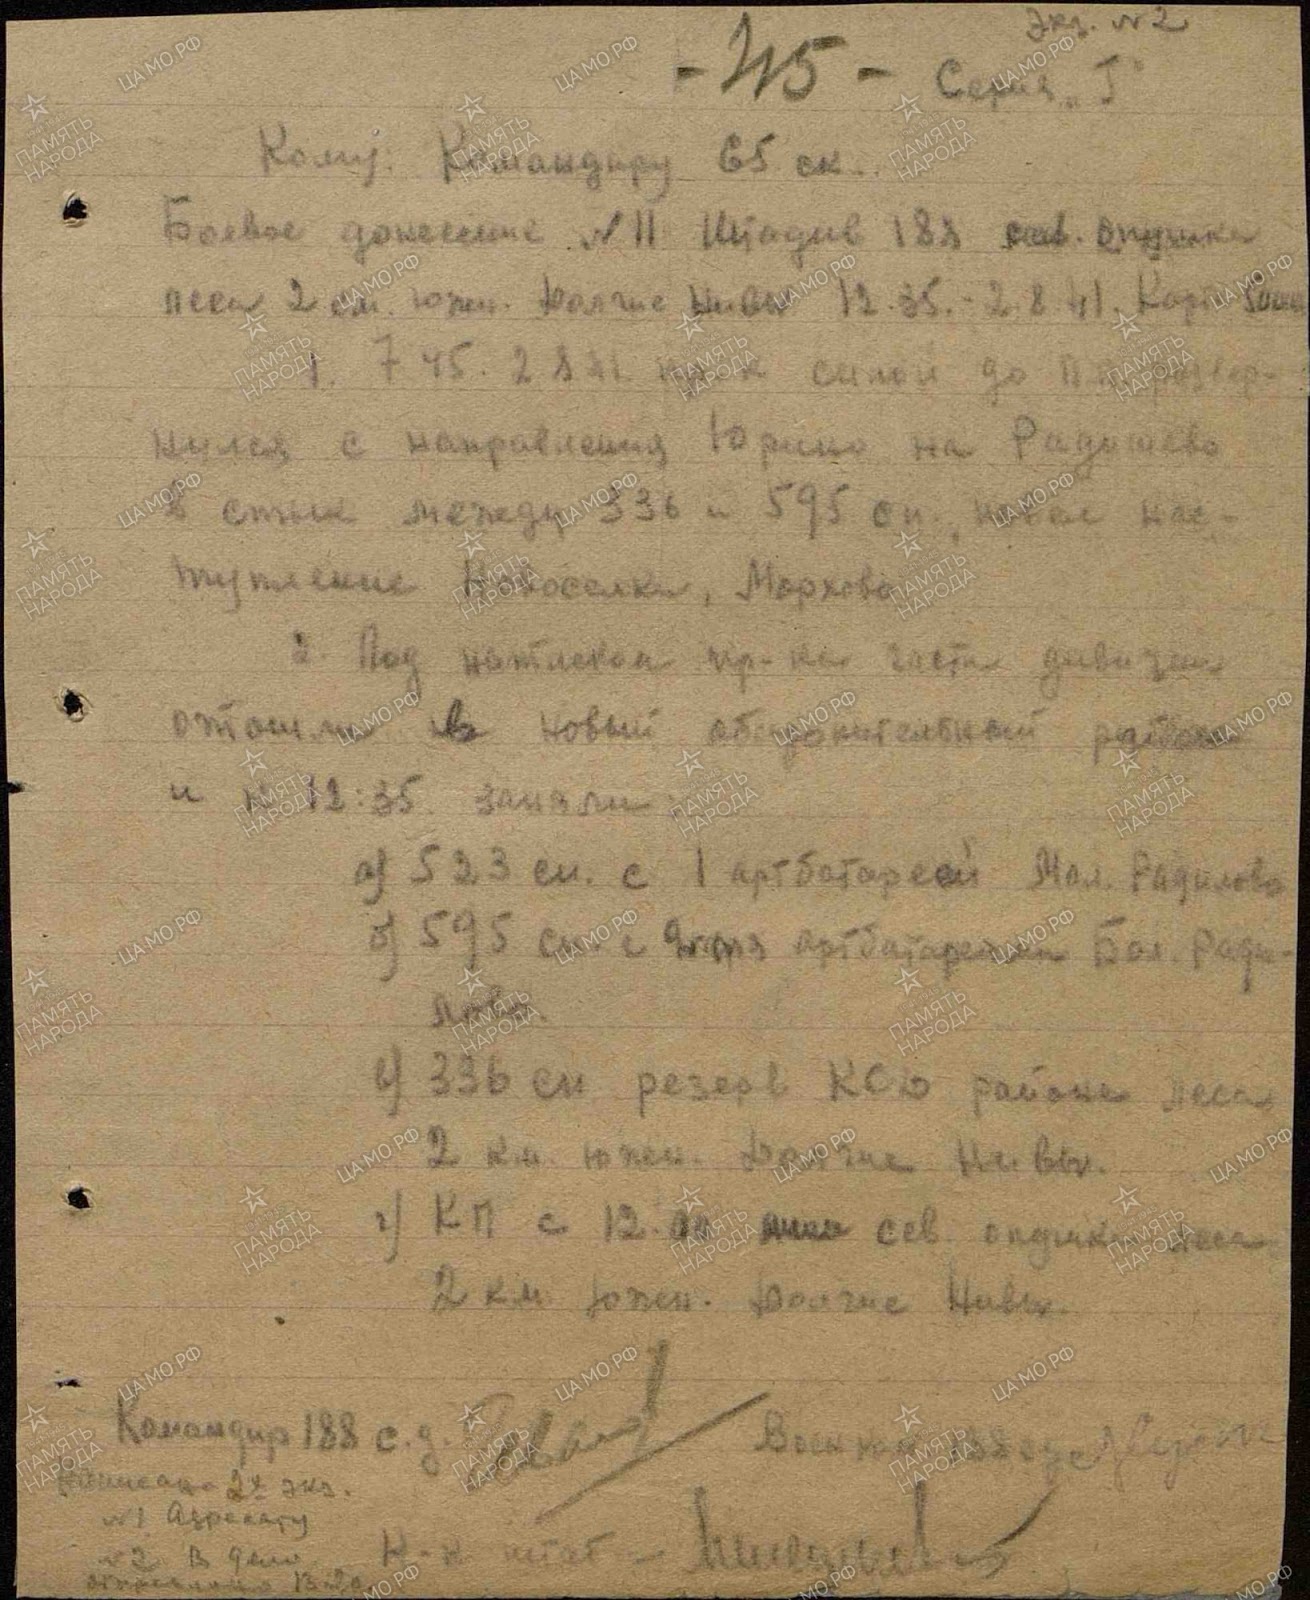 Экз. №2
- 45 -
Серия „Г"
Кому: Командиру 65 ск.
Боевое донесение №11 Штадив 188 сев. опушка
леса 2 км. южн. Долгие Нивы 12.35. - 2.8.41. Карта 50000
1. 7.45. 2.8.41. пр-к силой до п.п. развер-
нулся с направления Юрино на Радишево
в стык между 336 и 595 сп., повел нас-
тупление Новоселки, Мархово
2. Под натиском пр-ка части дивизии
отошли в новый оборонительный район
и к 12:35 заняли:
а) 523 сп. с 1 артбатареей Мал. Радилово
б) 595 сп. с артбатареями Бол. Ради-
лово.
в) 336 сп резерв КСД районе леса
2 км. южн. Долгие Нивы.
г) КП с 12.00 сев. опушка леса
2 км. южн. Долгие Нивы.
Командир 188 с.д.
Военком 188 сд
Написано 2х экз.
№1 Адресату
№2 В дело
отправлено 13.20
Н-к штаба